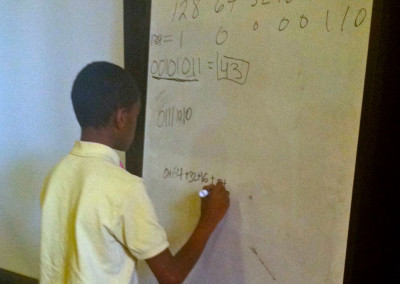 128 64 32 16
= 1 0 0 0 0 1 1 0
00101011 = 43
01111010
0+64+32+16+